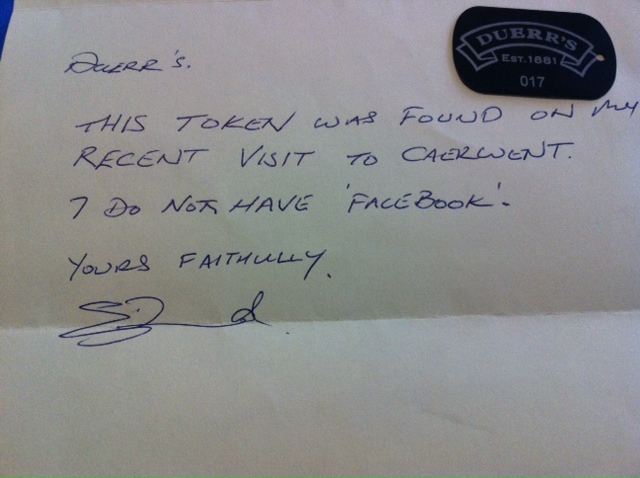 DUERR'S
EST. 1881
017
DUERR'S.
THIS TOKEN WAS FOUND ON MY
RECENT VISIT TO CAERWENT.
I DO NOT HAVE 'FACEBOOK'.
YOURS FAITHFULLY.